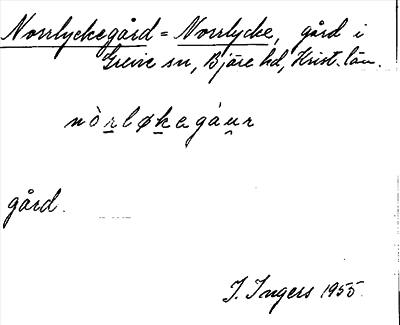 Norrlyckegård = Norrlycke, gård i
Grevie sn, Bjäre hd, Krist. län.
nòrløkegáur
gård.
I. Ingers 1955.